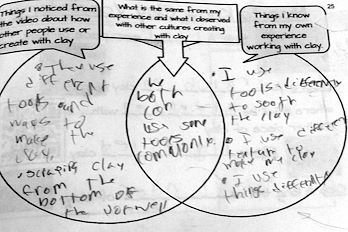 Things I noticed from
the video about how
other people use or
create with clay
What is the same from my
experience and what I observed
with other cultures creating
with clay
Things I know
from my own
experience
working with clay.
25
• They use
different
tools and
ways to
make the
clay.
• scraping clay
from the
bottom of
the
we
both
can
use some
tools
commonly.
• I use
tools differently
to smooth
the clay
• I use different
to
make my clay
• I use
things differently